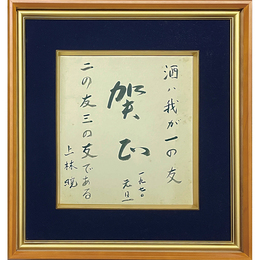 酒は我が一の友
賀正
一九七〇
元旦
二の友三の友である
上林暁